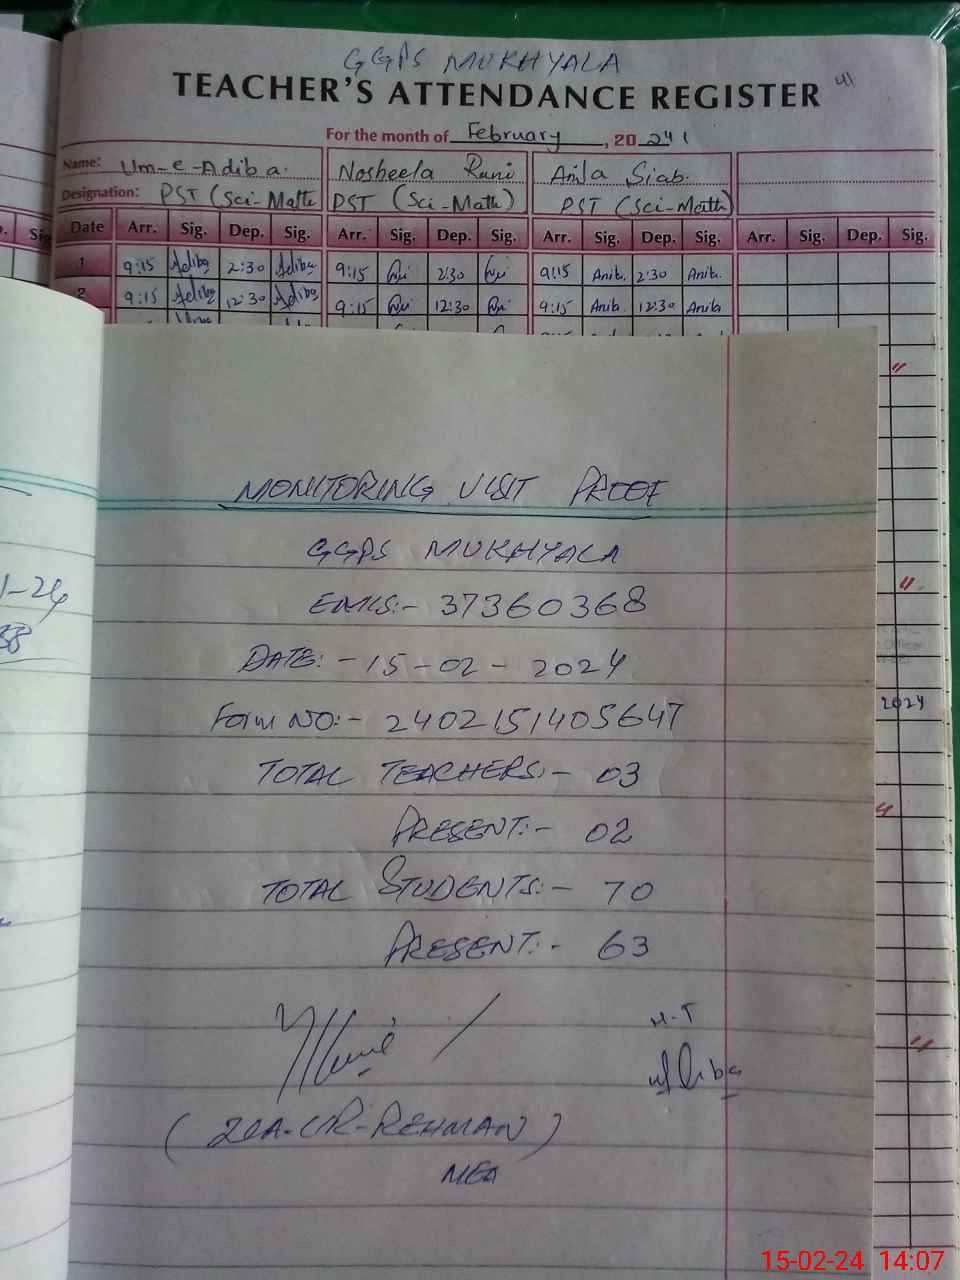 GGPS MUKHYALA
TEACHER'S ATTENDANCE REGISTER
For the month of February, 2024
Name: Um-e-Adiba. Nosheela Rani Anila Siab.
Designation: PST (Sci-Math PST (Sci-Math) PST (Sci-Math)
Sig
Date Arr. Sig. Dep. Sig. Arr. Sig. Dep. Sig. Arr. Sig. Dep. Sig. Arr. Sig. Dep. Sig.
1 9:15 Adiba 2:30 Adiba 9:15 2:30 9:15 Anila 2:30 Anila
2 9:15 Adiba 12:30 Adiba 9:15 12:30 9:15 Anila 12:30 Anila
MONITORING VISIT PROOF
GGPS MUKHYALA
EMIS:- 37360368
DATE:- 15-02-2024
Form NO:- 2402151405647
2024
TOTAL TEACHERS:- 03
PRESENT:- 02
TOTAL STUDENTS:- 70
PRESENT:- 63
H.T
Adiba
(ZIA-UR-REHMAN)
MEA
15-02-24 14:07